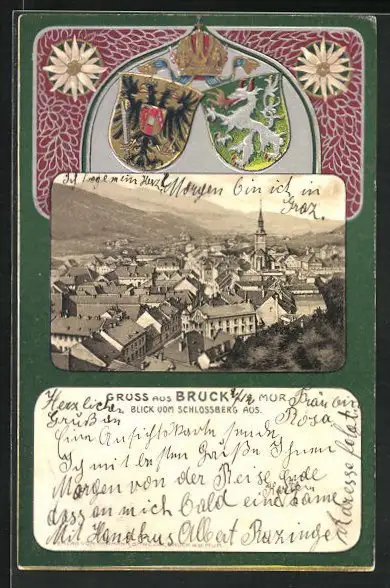 Morgen bin ich in
Graz.
GRUSS AUS BRUCK a/d MUR.
BLICK VOM SCHLOSSBERG AUS.
Herzlichen
Gruß an
Frau
Rosa
Eine Ansichtskarte sende
Ich mit besten Grüße Ihnen
Morgen von der Reise
dass an mich bald eine käme
Mit Handkuss Albert
Adresse folgt